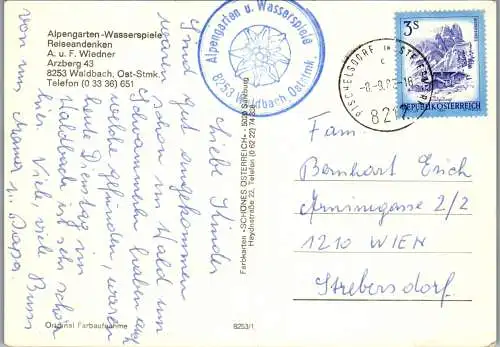 Alpengarten-Wasserspiele
Reiseandenken
A. u. F. Wiedner
Arzberg 43
8253 Waldbach, Ost-Stmk.
Telefon (0 33 36) 651
Alpengarten u. Wasserspiele
8253 Waldbach, Oststmk.
3S
REPUBLIK ÖSTERREICH
PISCHELSDORF IN STEIERMARK
8212
Liebe Kinder
Sind gut angekommen
waren schon im Wald um
Schwammerln haben auch
welche gefunden, waren
heute Dienstag in
Waldbach ist sehr schön
hier. Viele, viele Bussi
von uns Mama u. Papa.
Farbkarten «SCHÖNES ÖSTERREICH» · 5020 Salzburg
Haydnstraße 22, Telefon (0 62 22) 74 2
Fam.
Bernhart Erich
Arminigasse 2/2
1210 WIEN
Strebersdorf
Original Farbaufnahme
8253/1